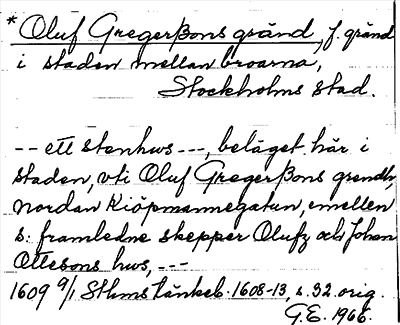 * Oluf Gregerßons gränd, f. gränd
i staden mellan broarna,
Stockholms stad.
-- ett stenhws ---, beläget här i
staden, vti Oluf Gregerßons grendh,
nordan Kiöpmannegatun, emellen
s: framledne skepper Olufz och Johan
Ottesons hws, ---
1609 9/1 Sthms tänkeb. 1608-13, s. 32 orig.
G.E. 1966.